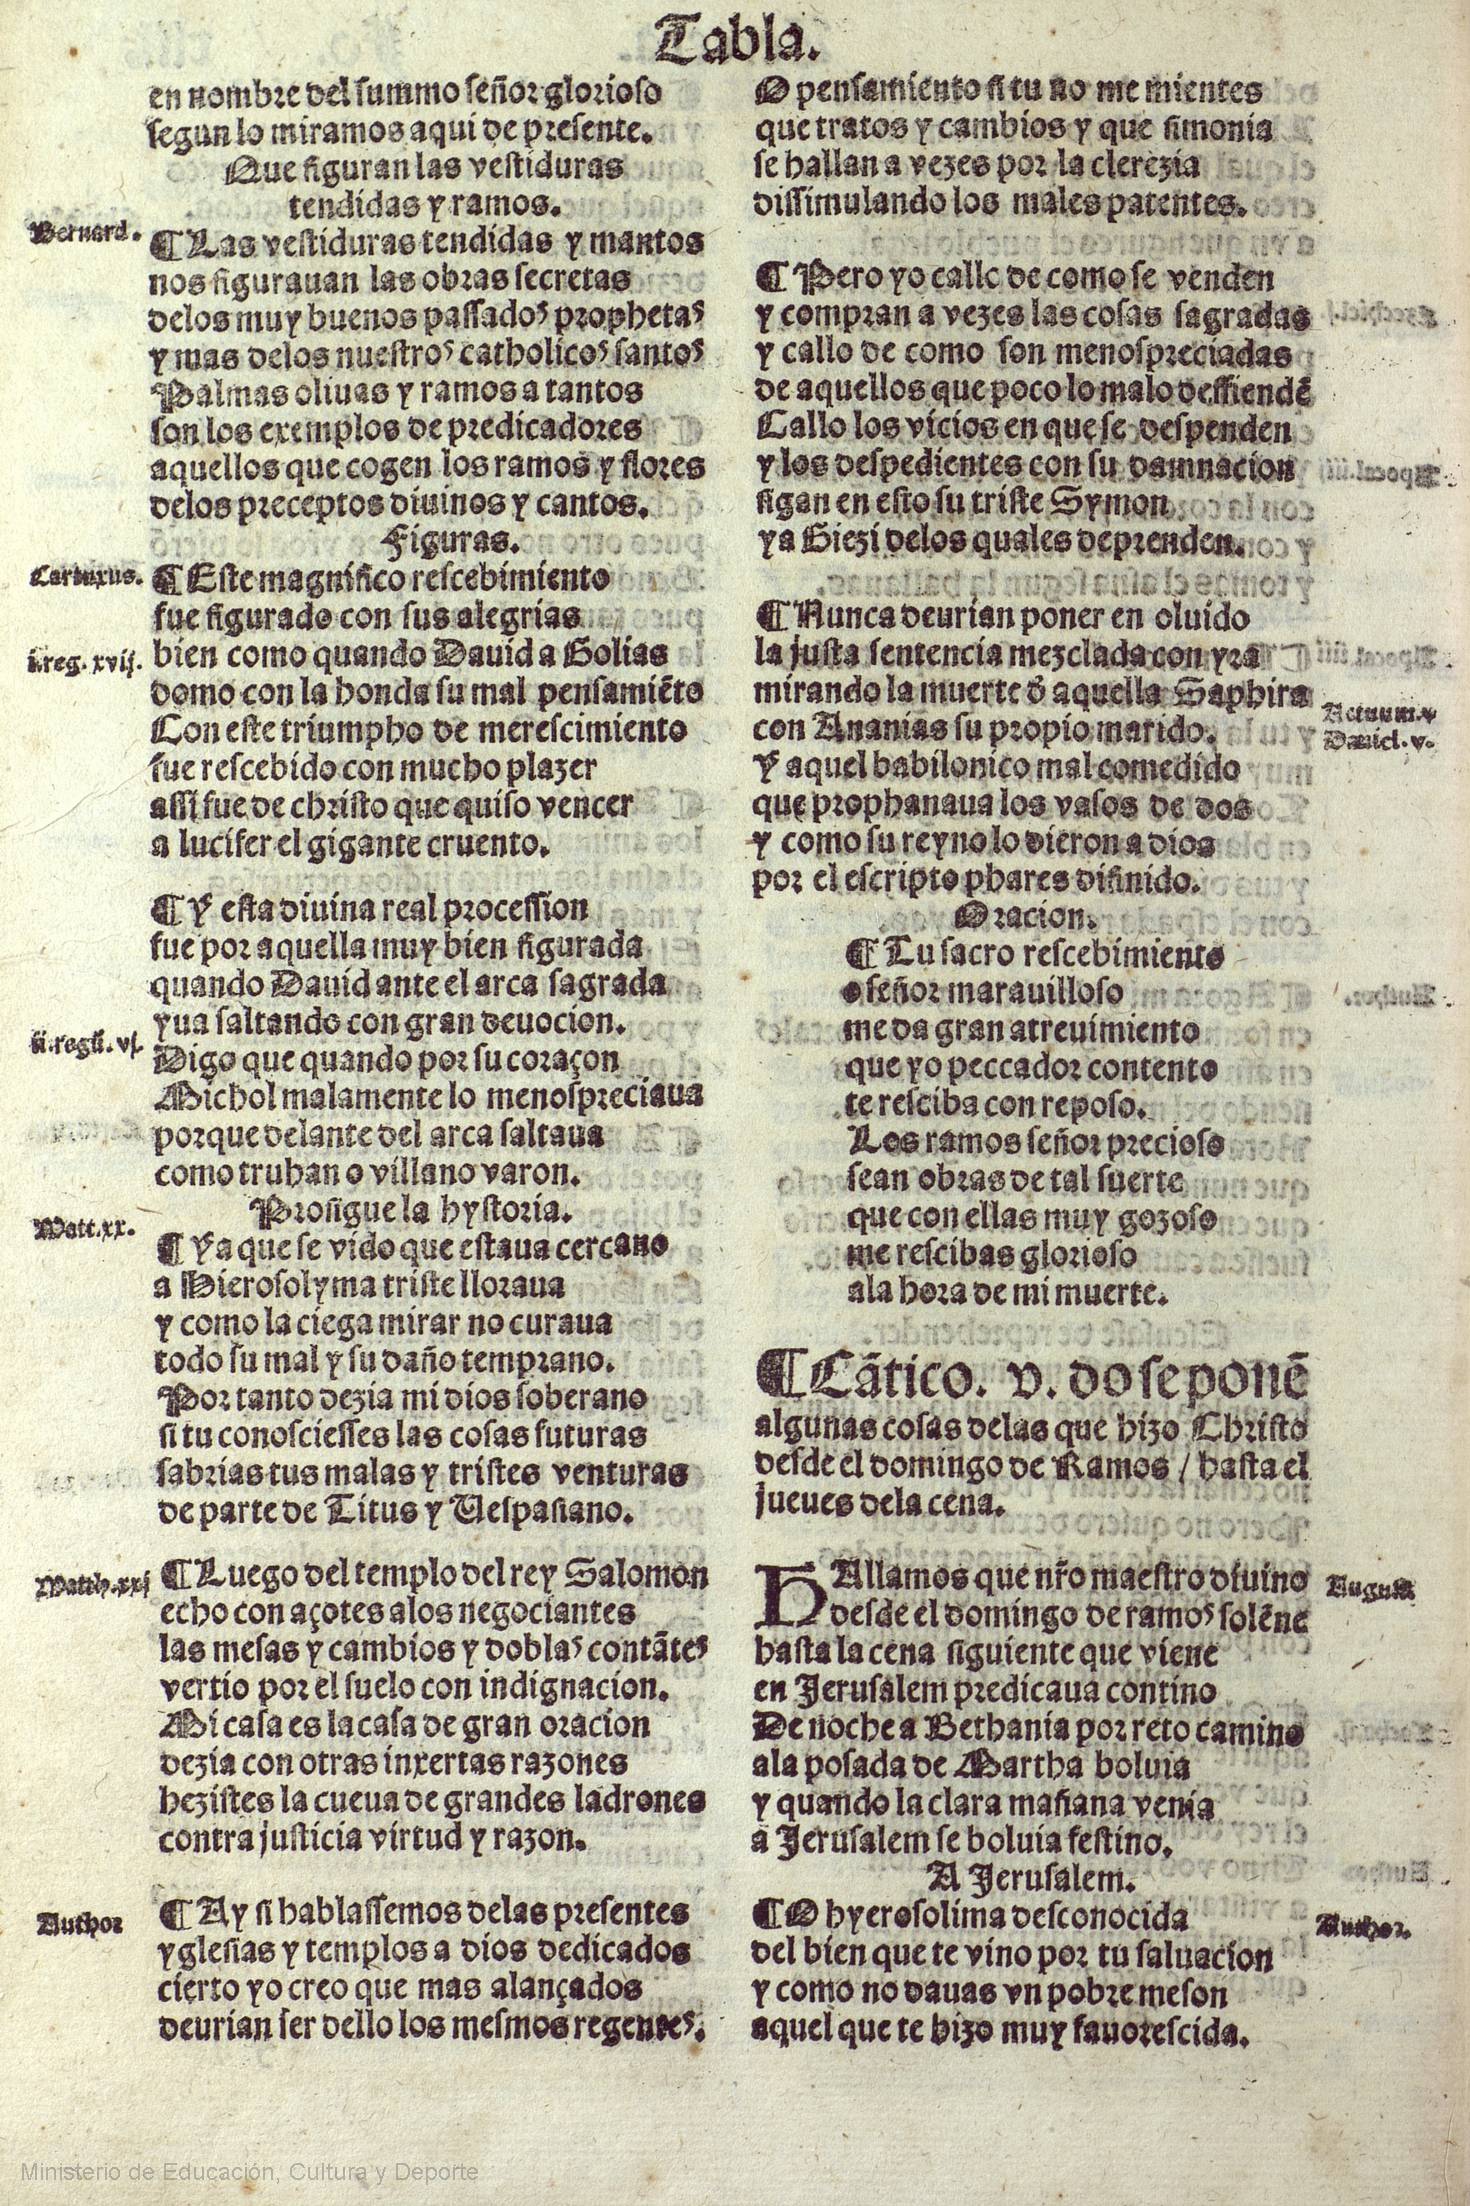 Tabla.
en nombre del summo señor glorioso
segun lo miramos aqui de presente.
Que figuran las vestiduras
tendidas y ramos.
Bernard.
¶ Las vestiduras tendidas y mantos
nos figurauan las obras secretas
delos muy buenos passados prophetas
y mas delos nuestros catholicos santos
Palmas oliuas y ramos a tantos
son los exemplos de predicadores
aquellos que cogen los ramos y flores
delos preceptos diuinos y cantos.
Figuras.
Cartuxus.
¶ Este magnifico rescebimiento
fue figurado con sus alegrias
i.reg. xvij.
bien como quando Dauid a Golias
domo con la honda su mal pensamiẽto
Con este triumpho de merescimiento
fue rescebido con mucho plazer
assi fue de christo que quiso vencer
a lucifer el gigante cruento.
¶ Y esta diuina real procession
fue por aquella muy bien figurada
quando Dauid ante el arca sagrada
yua saltando con gran deuocion.
ii.regũ. vj.
Digo que quando por su coraçon
Michol malamente lo menospreciaua
porque delante del arca saltaua
como truhan o villano varon.
Prosigue la hystoria.
Matt.xx.
¶ Ya que se vido que estaua cercano
a Hierosolyma triste lloraua
y como la ciega mirar no curaua
todo su mal y su daño temprano.
Por tanto dezia mi dios soberano
si tu conosciesses las cosas futuras
sabrias tus malas y tristes venturas
de parte de Titus y Uespasiano.
Matth.xxj
¶ Luego del templo del rey Salomon
echo con açotes alos negociantes
las mesas y cambios y doblas contãtes
vertio por el suelo con indignacion.
Mi casa es la casa de gran oracion
dezia con otras inxertas razones
hezistes la cueua de grandes ladrones
contra justicia virtud y razon.
Author
¶ Ay si hablassemos delas presentes
yglesias y templos a dios dedicados
cierto yo creo que mas alançados
deurian ser dello los mesmos regentes.
O pensamiento si tu no me mientes
que tratos y cambios y que simonia
se hallan a vezes por la clerezia
dissimulando los males patentes.
¶ Pero yo callo de como se venden
y compran a vezes las cosas sagradas
y callo de como son menospreciadas
de aquellos que poco lo malo deffiendẽ
Callo los vicios en que se despenden
y los despedientes con su damnacion
sigan en esto su triste Symon
ya Giezi delos quales deprenden.
¶ Nunca deurian poner en oluido
la justa sentencia mezclada con yra
mirando la muerte d̃ aquella Saphira
Actuum.v
con Ananias su propio marido.
Daniel. v.
Y aquel babilonico mal comedido
que prophanaua los vasos de dos
y como su reyno lo dieron a dios
por el escripto phares difinido.
Oracion.
¶ Tu sacro rescebimiento
o señor marauilloso
me da gran atreuimiento
que yo peccador contento
te resciba con reposo.
Los ramos señor precioso
sean obras de tal suerte
que con ellas muy gozoso
me rescibas glorioso
ala hora de mi muerte.
¶ Cãtico. v. do se ponẽ
algunas cosas delas que hizo Christo
desde el domingo de Ramos / hasta el
jueues dela cena.
HAllamos que nr̃o maestro diuino
August.
desde el domingo de ramos solẽne
hasta la cena siguiente que viene
en Jerusalem predicaua contino
De noche a Bethania por reto camino
ala posada de Martha boluia
y quando la clara mañana venia
a Jerusalem se boluia festino.
A Jerusalem.
¶ O hyerosolima desconocida
Author.
del bien que te vino por tu saluacion
y como no dauas vn pobre meson
aquel que te hizo muy fauorescida.
Ministerio de Educación, Cultura y Deporte